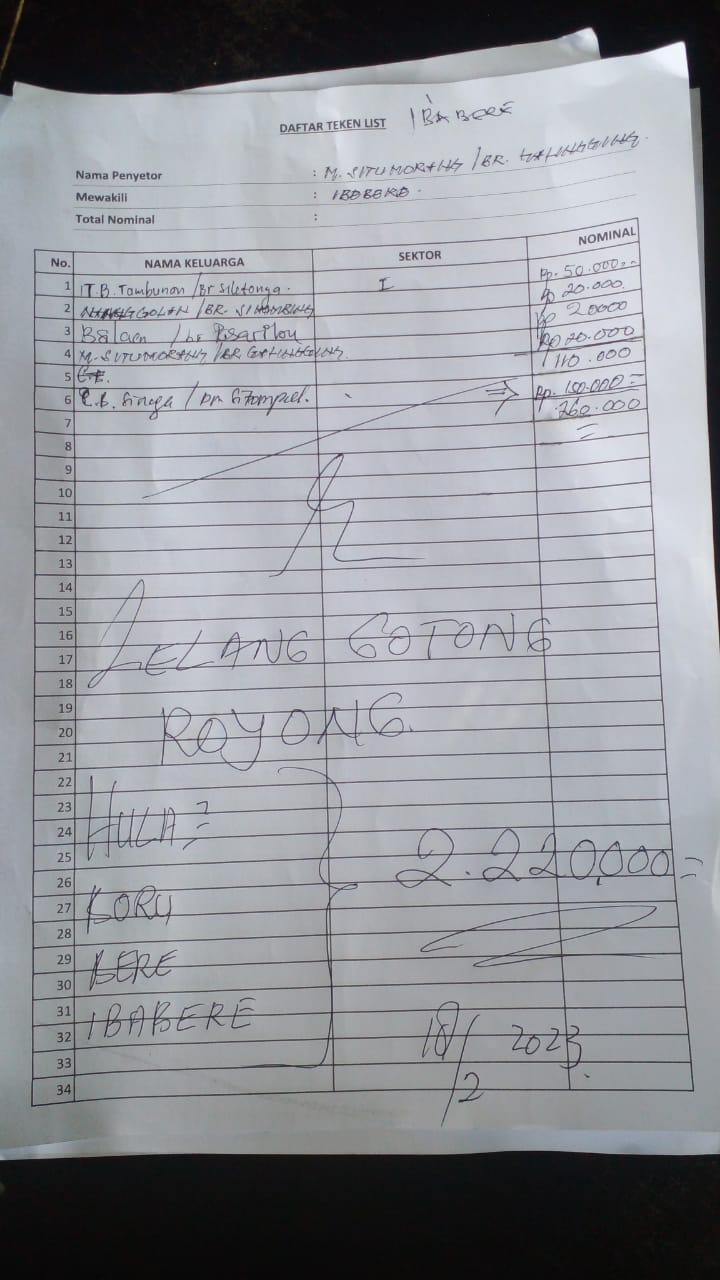 DAFTAR TEKEN LIST IBABERE
Nama Penyetor : M. SITUMORANG / BR.
Mewakili : IBABERE.
Total Nominal :
No. NAMA KELUARGA SEKTOR NOMINAL
1 T.B. Tambunan / Br Silitonga. I Rp. 50.000.-
2 NAINGGOLAN / BR. SIHOMBING Rp 20.000
3 / br Rp 20000
4 M. SITUMORANG / BR. Rp 20.000
5 110.000
6 Sinaga / Sitompul. Rp. 150.000.=
7 260.000
8
9
10
11
12
13
14
15
16
17
LELANG GOTONG
18
19
20
ROYONG.
21
22
23
24
HULA2
25
2.220.000=
26
27
BORU
28
29
BERE
30
31
32
IBABERE
18/2 2023.
33
34